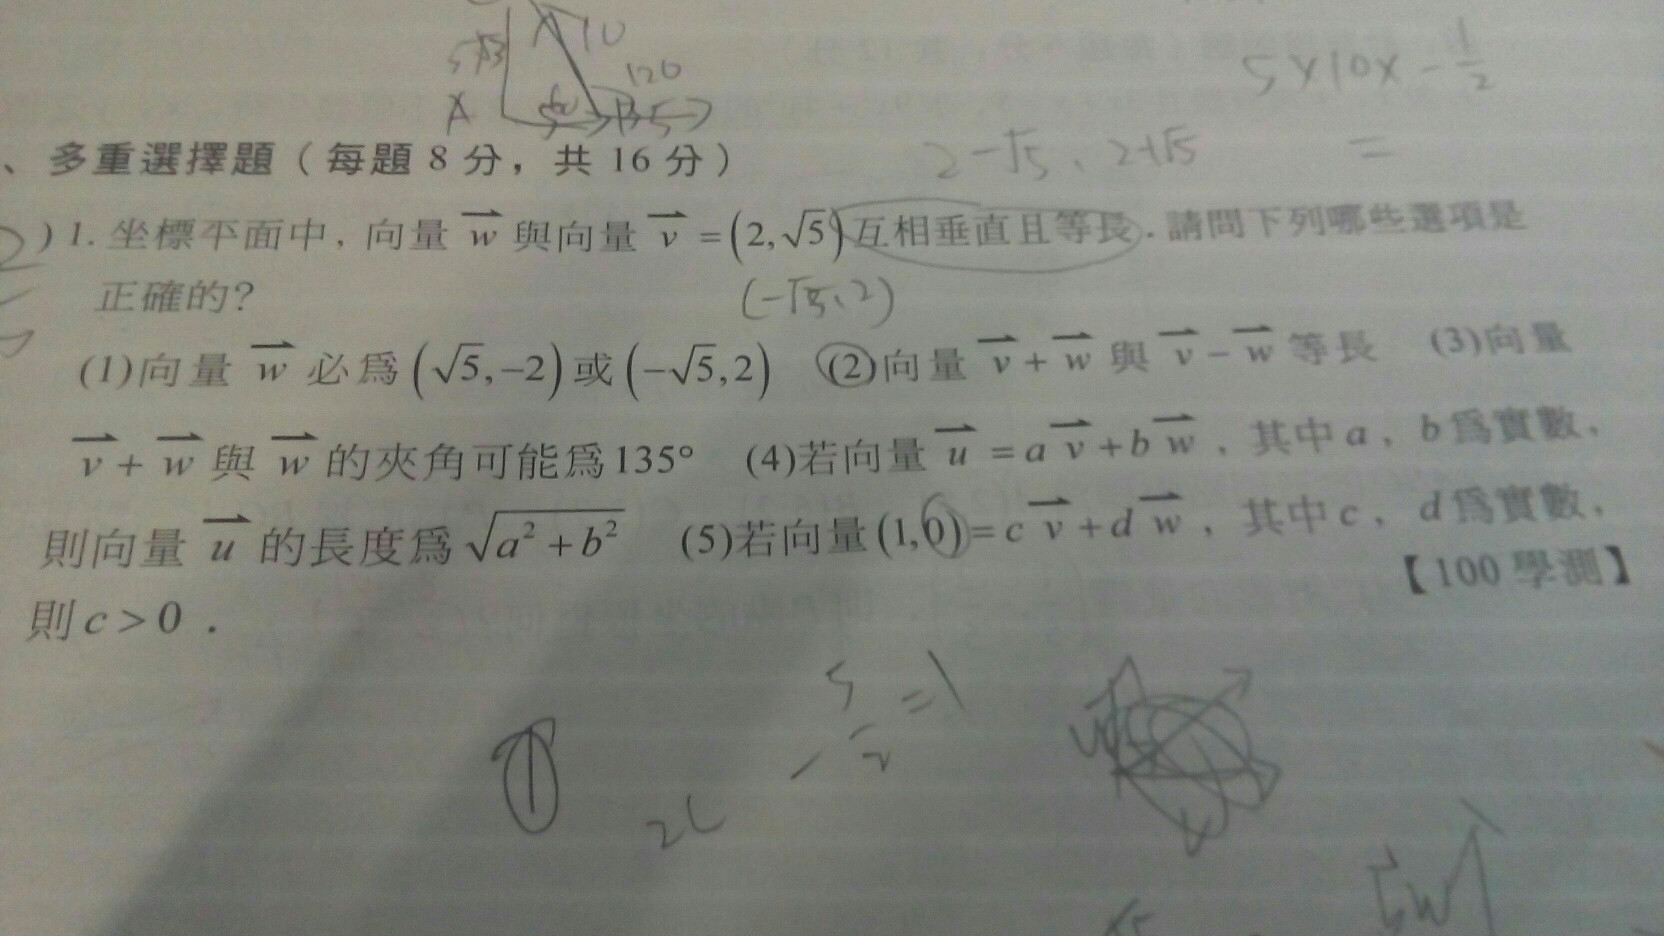 5√3 10
120
A 60 B 5
5×10×-1/2
=
、多重選擇題（每題 8 分，共 16 分）
2-√5、2+√5
)1. 坐標平面中，向量 w 與向量 v =(2,√5)互相垂直且等長．請問下列哪些選項是
正確的?
(-√5、2)
(1)向量 w 必爲(√5,−2)或(−√5,2) (2)向量 v + w 與 v − w 等長 (3)向量
v + w 與 w 的夾角可能爲135° (4)若向量 u = a v + b w ，其中 a ，b 爲實數，
則向量 u 的長度爲 √a²+b² (5)若向量(1,0)= c v + d w ，其中 c ，d 爲實數，
則 c > 0 ．
【100 學測】